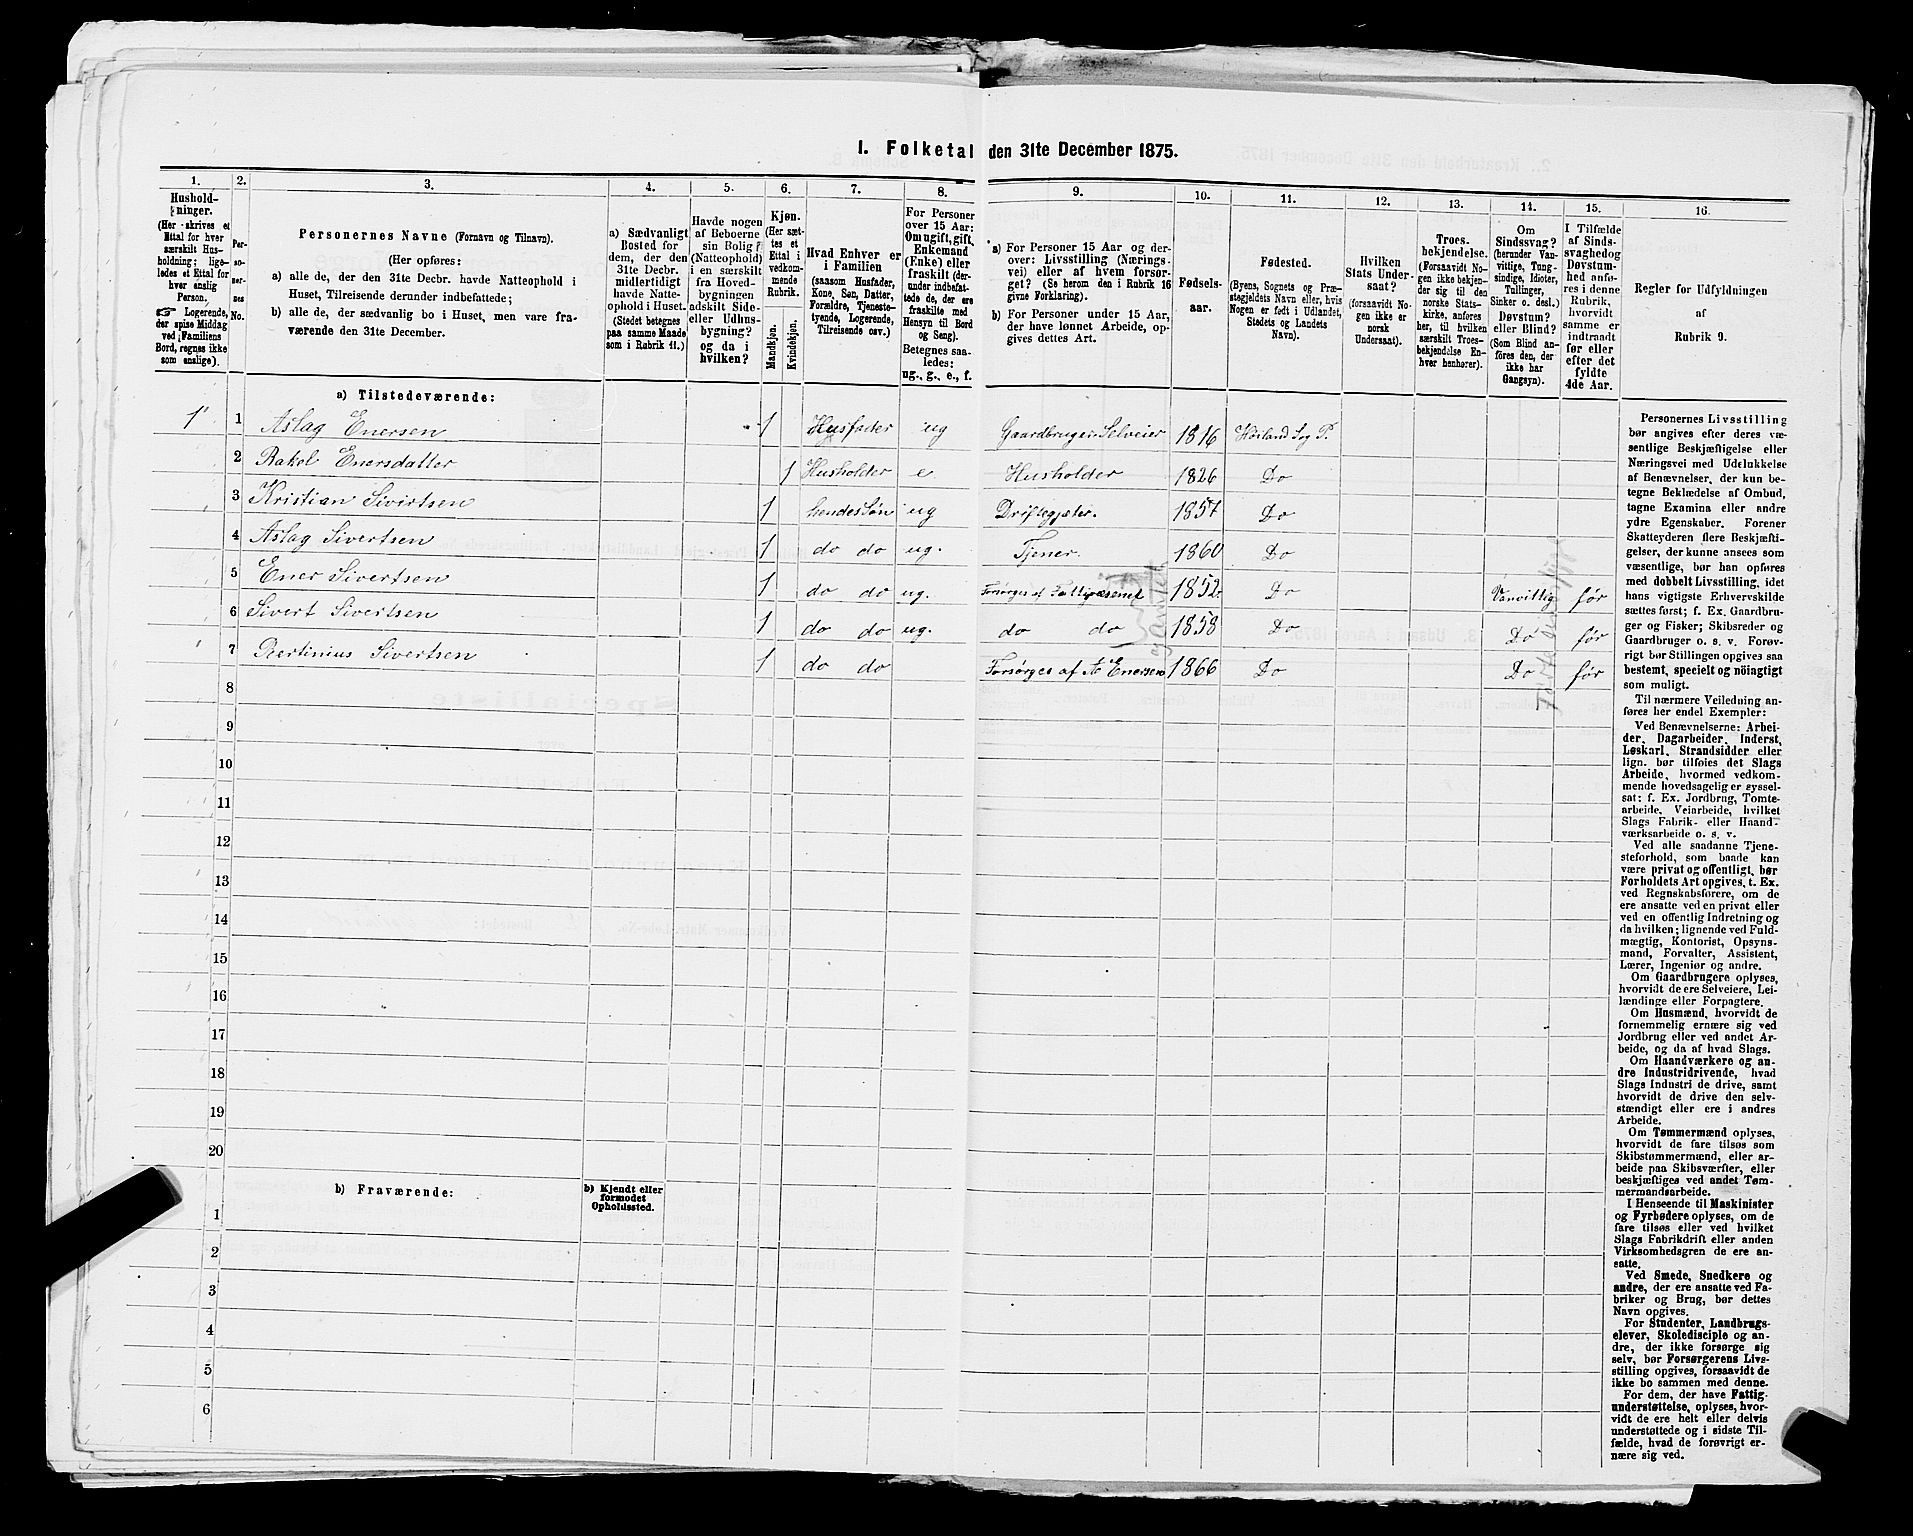 I. Folketal den 31te December 1875.
1.
2.
3.
4.
5.
6.
7.
8.
9.
10.
11.
12.
13.
14.
15.
16.
Hushold-
ninger.
(Her skrives et
Ettal for hver
særskilt Hus-
holdning; lige-
ledes et Ettal for
hver enslig
Person.
☞ Logerende,
der spise Middag
ved Familiens
Bord, regnes ikke
som enslige).
Per-
so-
ner-
nes
No.
Personernes Navne (Fornavn og Tilnavn).
(Her opføres:
a) alle de, der den 31te Decbr. havde Natteophold i
Huset, Tilreisende derunder indbefattede;
b) alle de, der sædvanlig bo i Huset, men vare fra-
værende den 31te December.
a) Sædvanligt
Bosted for
dem, der den
31te Decbr.
midlertidigt
havde Natte-
ophold i Huset.
(Stedet betegnes
paa samme Maade
som i Rubrik 11.)
Havde nogen
af Beboerne
sin Bolig
(Natteophold)
i en særskilt
fra Hoved-
bygningen
adskilt Side-
eller Udhus-
bygning?
og da i
hvilken?
Kjøn.
(Her sæt-
tes et
Ettal i
vedkom-
mende
Rubrik.
Mandkjøn.
Kvindekjøn.
Hvad Enhver er
i Familien
(saasom Husfader,
Kone, Søn, Datter,
Forældre, Tjeneste-
tyende, Logerende,
Tilreisende osv.)
For Personer
over 15 Aar:
Om ugift, gift,
Enkemand
(Enke) eller
fraskilt (der-
under indbefat-
tede de, der ere
fraskilte med
Hensyn til Bord
og Seng).
Betegnes saa-
ledes:
ug., g., e., f.
a) For Personer 15 Aar og der-
over: Livsstilling (Nærings-
vei) eller af hvem forsør-
get? (Se herom den i Rubrik 16
givne Forklaring).
b) For Personer under 15 Aar,
der have lønnet Arbeide, op-
gives dettes Art.
Fødsels-
aar.
Fødested.
(Byens, Sognets og Præ-
stegjeldets Navn eller, hvis
Nogen er født i Udlandet,
Stedets og Landets
Navn).
Hvilken
Stats Under-
saat?
(forsaavidt No-
gen ikke er
norsk
Undersaat).
Troes-
bekjendelse.
(Forsaavidt No-
gen ikke bekjen-
der sig til den
norske Stats-
kirke, anføres
her, til hvilken
særskilt Troes-
bekjendelse En-
hver henhører).
Om
Sindssvag?
(herunder Van-
vittige, Tung-
sindige, Idioter,
Tullinger,
Sinker o. desl.)
Døvstum?
eller Blind?
(Som Blind an-
føres den, der
ikke har
Gangsyn).
I Tilfælde
af Sinds-
svaghed og
Døvstum-
hed anfø-
res i denne
Rubrik,
hvorvidt
samme er
indtraadt
før eller
efter det
fyldte
4de Aar.
Regler for Udfyldningen
af
Rubrik 9.
a) Tilstedeværende:
1 1 Aslag Enersen 1 Husfader ug Gaardbruger Selveier 1816 Høiland Sog P.
2 Rakel Enersdatter 1 Husholder e Husholder 1826 Do
3 Kristian Sivertsen 1 hendes Søn ug Driftegjæter. 1857 Do
4 Aslag Sivertsen 1 do do ug. Tjener. 1860 Do
5 Ener Sivertsen 1 do do ug. Forsørges af Fattigvæsenet 1852 Do Vanvittig før
6 Sivert Sivertsen 1 do do ug. do do 1858 Do Do før
7 Bertinius Sivertsen 1 do do Forsørges af A Enersen 1866 Do Do før
8
9
10
11
12
13
14
15
16
17
18
19
20
b) Fraværende:
b) Kjendt eller
formodet
Opholdssted.
1
2
3
4
5
6
Personernes Livsstilling
bør angives efter deres væ-
sentlige Beskjæftigelse eller
Næringsvei med Udelukkelse
af Benævnelser, der kun be-
tegne Beklædelse af Ombud,
tagne Examina eller andre
ydre Egenskaber. Forener
Skatteyderen flere Beskjæfti-
gelser, der kunne ansees som
væsentlige, bør han opføres
med dobbelt Livsstilling, idet
hans vigtigste Erhvervskilde
sættes først; f. Ex. Gaardbru-
ger og Fisker; Skibsreder og
Gaardbruger o. s. v. Forøv-
rigt bør Stillingen opgives saa
bestemt, specielt og nöiagtigt
som muligt.
Til nærmere Veiledning an-
føres her endel Exempler:
Ved Benævnelserne: Arbei-
der, Dagarbeider, Inderst,
Løskarl, Strandsidder eller
lign. bør tilføies det Slags
Arbeide, hvormed vedkom-
mende hovedsagelig er syssel-
sat; f. Ex. Jordbrug, Tomte-
arbeide, Veiarbeide, hvilket
Slags Fabrik- eller Haand-
værksarbeide o. s. v.
Ved alle saadanne Tjene-
steforhold, som baade kan
være privat og offentligt, bør
Forholdets Art opgives, t. Ex.
ved Regnskabsførere, om de
ere ansatte ved en privat eller
ved en offentlig Indretning og
da hvilken; lignende ved Fuld-
mægtig, Kontorist, Opsyns-
mand, Forvalter, Assistent,
Lærer, Ingeniør og andre.
Om Gaardbrugere oplyses,
hvorvidt de ere Selveiere, Lei-
lændinge eller Forpagtere.
Om Husmænd, hvorvidt de
fornemmelig ernære sig ved
Jordbrug eller ved andet Ar-
beide, og da af hvad Slags.
Om Haandværkere og an-
dre Industridrivende, hvad
Slags Industri de drive, samt
hvorvidt de drive den selv-
stændigt eller ere i andres
Arbeide.
Om Tømmermænd oplyses,
hvorvidt de fare tilsøs som
Skibstømmermænd, eller ar-
beide paa Skibsværfter, eller
beskjæftiges ved andet Tøm-
mermandsarbeide.
I Henseende til Maskinister
og Fyrbødere oplyses, om de
fare tilsøs eller ved hvilket
Slags Fabrikdrift eller anden
Virksomhedsgren de ere an-
satte.
Ved Smede, Snedkere og
andre, der ere ansatte ved Fa-
briker og Brug, bør dettes
Navn opgives.
For Studenter, Landbrugs-
elever, Skoledisciple og an-
dre, der ikke forsørge sig
selv, bør Forsørgerens Livs-
stilling opgives, forsaavidt de
ikke bo sammen med denne.
For dem, der have Fattig-
understøttelse, oplyses, hvor-
vidt de ere helt eller delvis
understøttede og i sidste Til-
fælde, hvad de forøvrigt er-
nære sig ved.